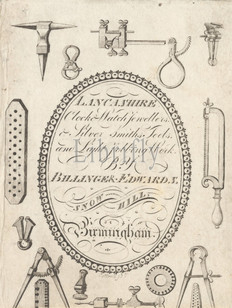 LANCASHIRE
Clock & Watch Jewellers
& Silver smiths, Tools
and Light Jobbing Work
BY
BILLINGE & EDWARDS,
SNOW HILL,
Birmingham.